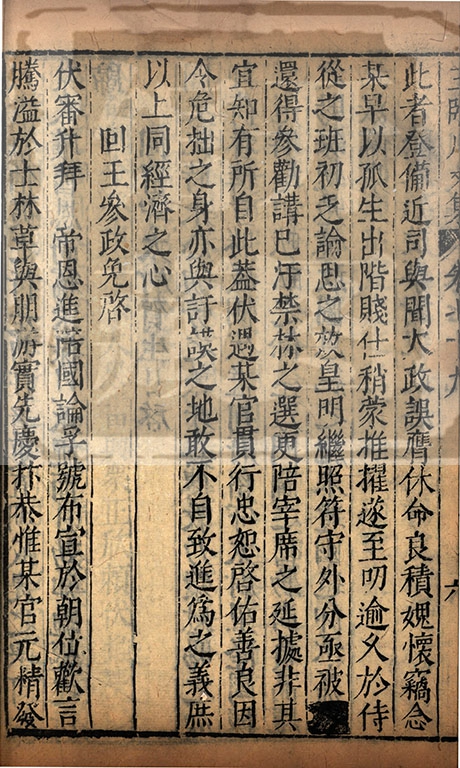 王臨川文集 卷七十九 六
此者登備近司與聞大政誤膺休命良積媿懷竊念
某早以孤生出階賤仕稍蒙推擢遂至叨逾久於侍
從之班初乏論思之效皇明繼照符守外分亟被
還得參勸講已汙禁林之選更陪宰席之延據非其
宜知有所自此蓋伏遇某官貫行忠恕啓佑善良因
令危拙之身亦與訏謨之地敢不自致進爲之義庶
以上同經濟之心
回王參政免啓
伏審升拜 帝恩進陪國論孚號布宣於朝仕歡言
騰溢於士林草與朋游實先慶抃恭惟某官元精發